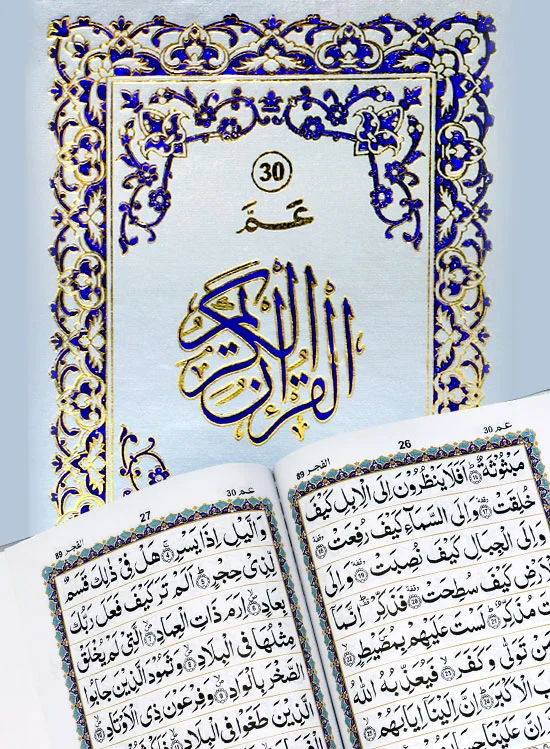 30
عَمَّ
القرآن الكريم
الفجر 89
26
عم 30
مَبْثُوْثَةٌ ۝ اَفَلَا يَنْظُرُوْنَ اِلَى الْاِبِلِ كَيْفَ
خُلِقَتْ ۝ وَاِلَى السَّمَآءِ كَيْفَ رُفِعَتْ ۝
وَاِلَى الْجِبَالِ كَيْفَ نُصِبَتْ ۝ وَاِلَى
كَيْفَ سُطِحَتْ ۝ فَذَكِّرْ اِنَّمَا
مُذَكِّرٌ ۝ لَسْتَ عَلَيْهِمْ بِمُصَيْطِرٍ ۝
مَنْ تَوَلّٰى وَكَفَرَ ۝ فَيُعَذِّبُهُ اللّٰهُ
الْاَكْبَرَ ۝ اِنَّ اِلَيْنَآ اِيَابَهُمْ ۝
اِنَّ عَلَيْنَا
الفجر 89
27
عم 30
وَالَّيْلِ اِذَا يَسْرِ ۝ هَلْ فِيْ ذٰلِكَ قَسَمٌ
لِّذِيْ حِجْرٍ ۝ اَلَمْ تَرَ كَيْفَ فَعَلَ رَبُّكَ
بِعَادٍ ۝ اِرَمَ ذَاتِ الْعِمَادِ ۝ الَّتِيْ لَمْ يُخْلَقْ
مِثْلُهَا فِي الْبِلَادِ ۝ وَثَمُوْدَ الَّذِيْنَ جَابُوا
الصَّخْرَ بِالْوَادِ ۝ وَفِرْعَوْنَ ذِي الْاَوْتَادِ ۝
الَّذِيْنَ طَغَوْا فِي الْبِلَادِ ۝